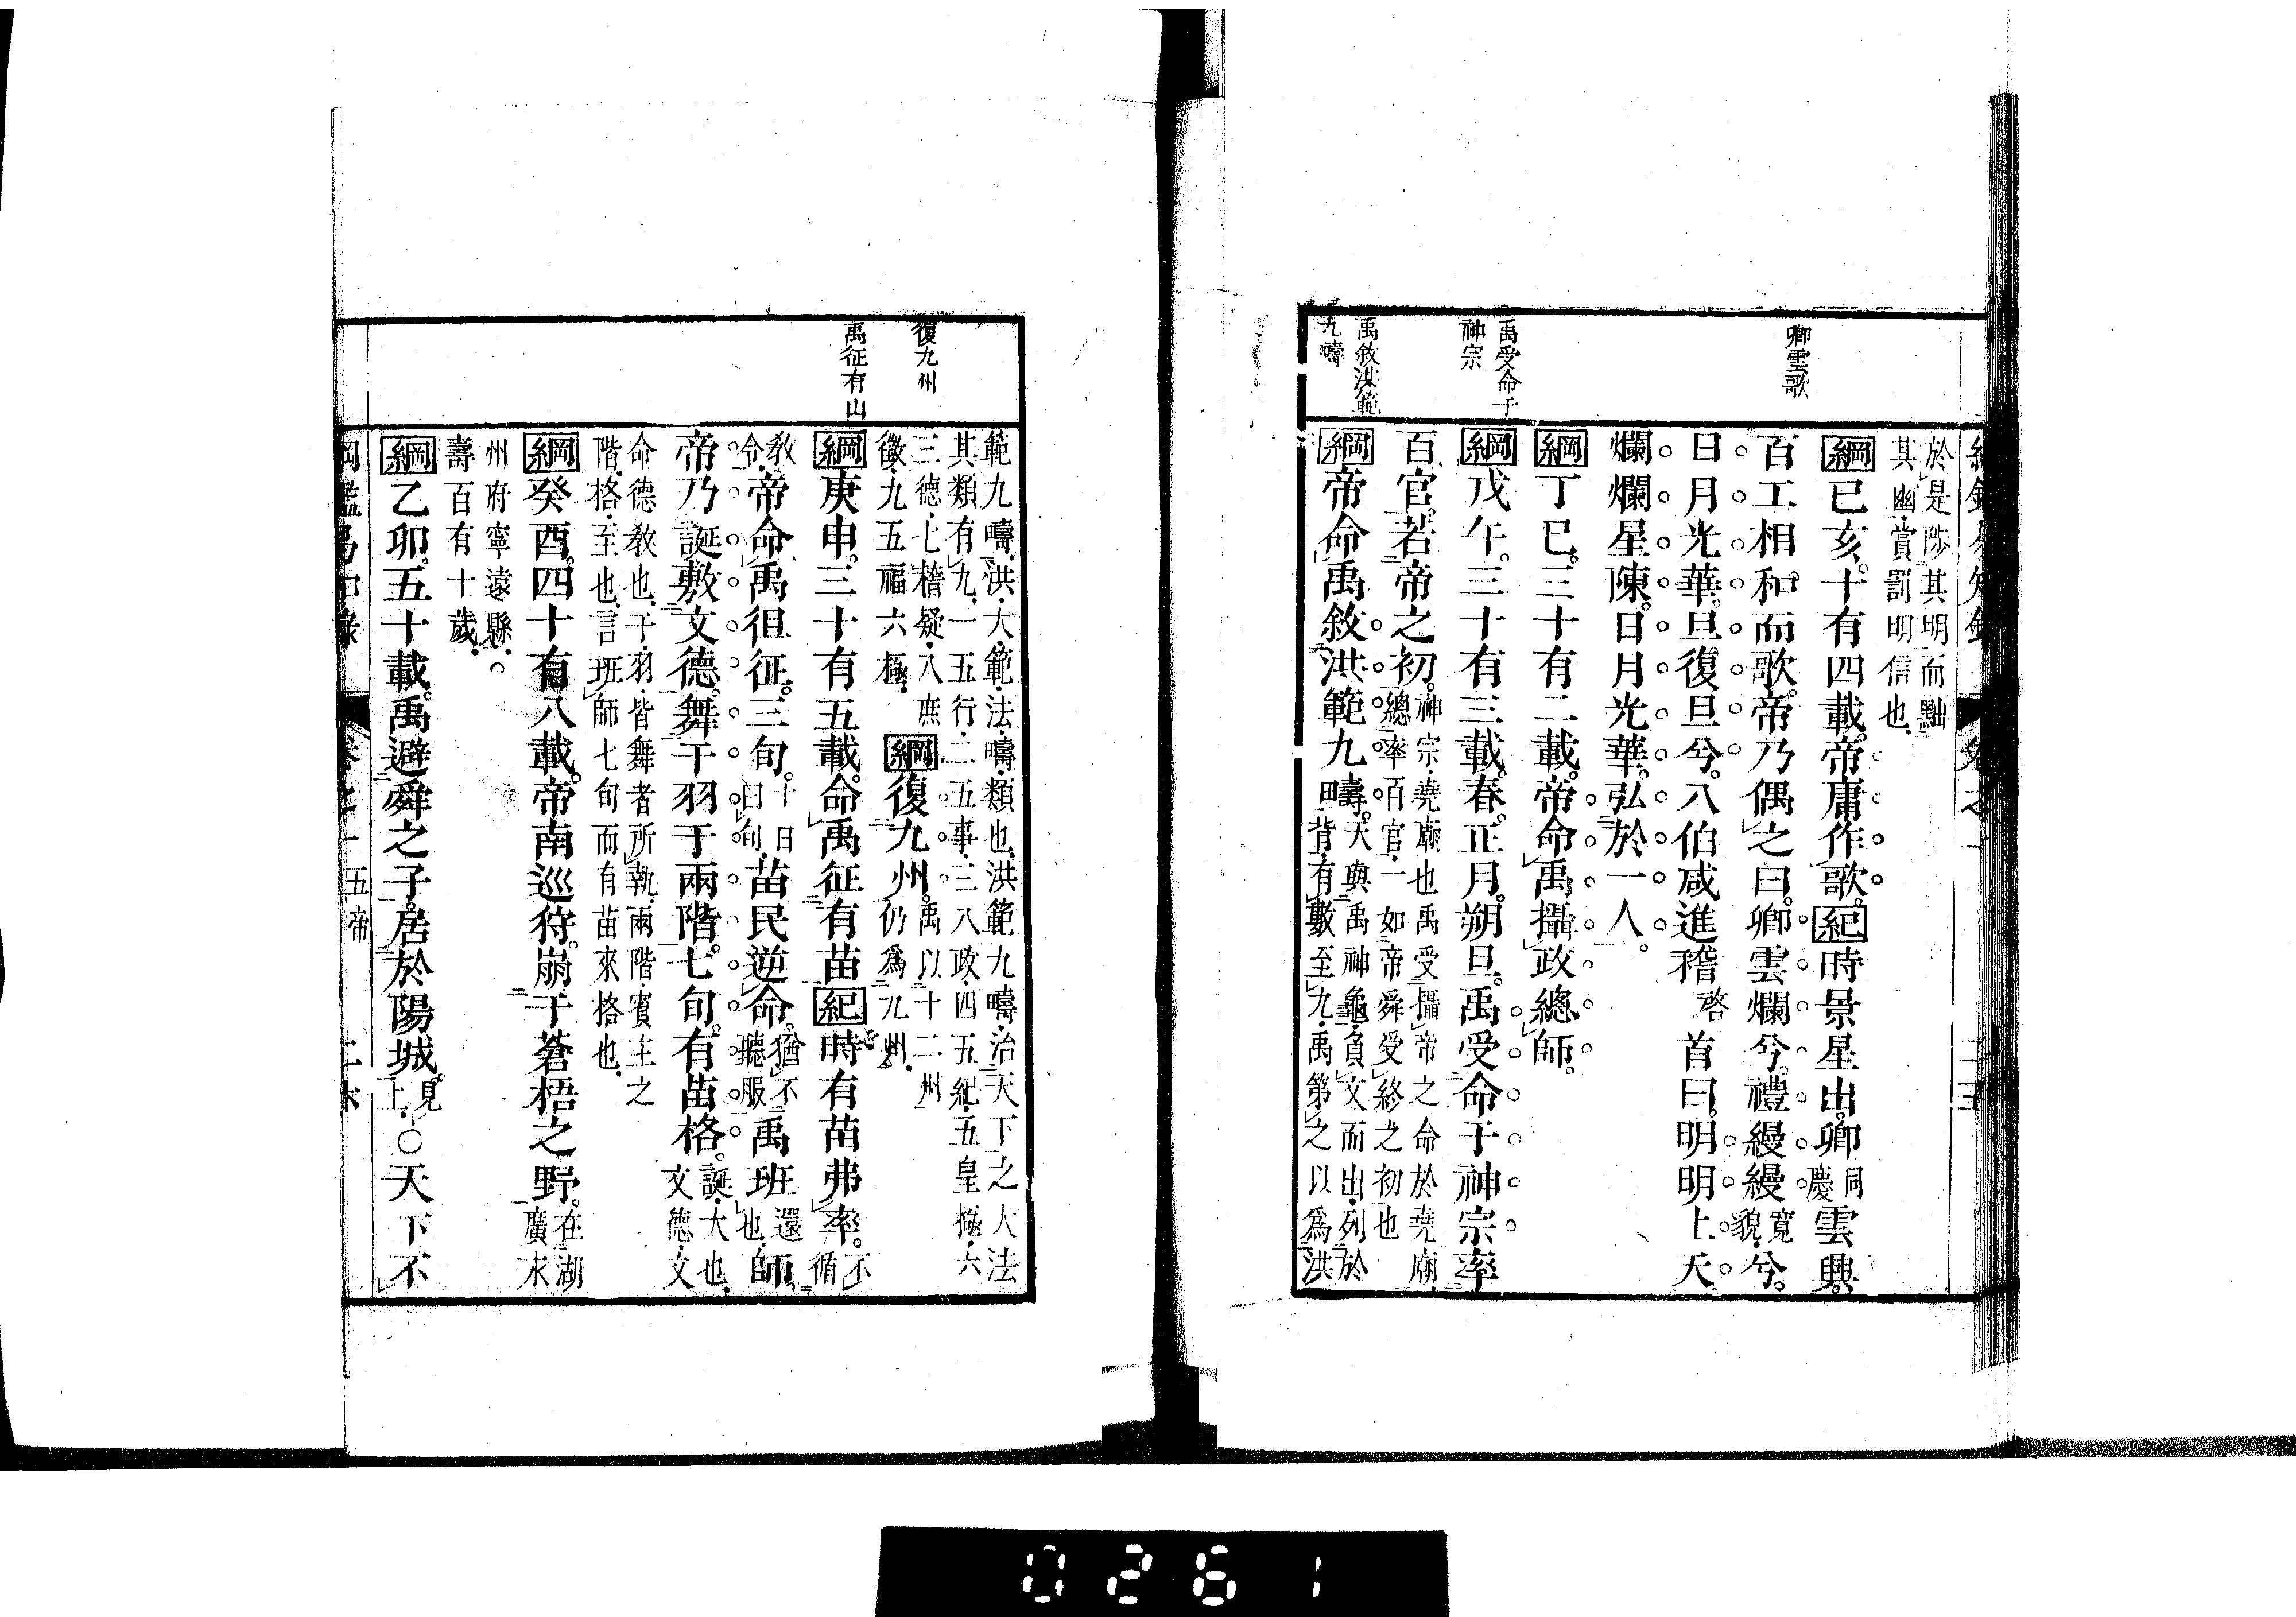 卿雲歌
禹受命于
神宗
禹敘洪範
九疇
於是陟其明而黜
其幽賞罰明信也
綱已亥十有四載帝庸作歌紀時景星出卿同慶雲興
百工相和而歌帝乃倡之曰卿雲爛兮禮縵縵寛貌兮
日月光華旦復旦兮八伯咸進稽啓首曰明明上天
爛爛星陳日月光華弘於一人
綱丁巳三十有二載帝命禹攝政總師
綱戊午三十有三載春正月朔旦禹受命于神宗率
百官若帝之初神宗堯廟也禹受攝帝之命於堯廟
總率百官一如帝舜受終之初也
綱帝命禹敘洪範九疇天與禹神龜負文而出列於
背有數至九禹第之以爲洪
復九州
禹征有山
範九疇洪大範法疇類也洪範九疇治天下之大法
其類有九一五行二五事三八政四五紀五皇極六
三德七稽疑八庶
徵九五福六極
綱復九州禹以十二州
仍爲九州
綱庚申三十有五載命禹征有苗紀時有苗弗率不
循
教
命帝命禹徂征三旬十日
曰旬苗民逆命猶不
聽服禹班還
也師
帝乃誕敷文德舞干羽于兩階七旬有苗格誕大也
文德文
命德教也干羽皆舞者所執兩階賓主之
階格至也言班師七旬而有苗來格也
綱癸酉四十有八載帝南巡狩崩于蒼梧之野在湖
廣永
州府寧遠縣
壽百有十歲
綱乙卯五十載禹避舜之子居於陽城見
上○天下不
綱鑑易知錄 卷之一 五帝 二六